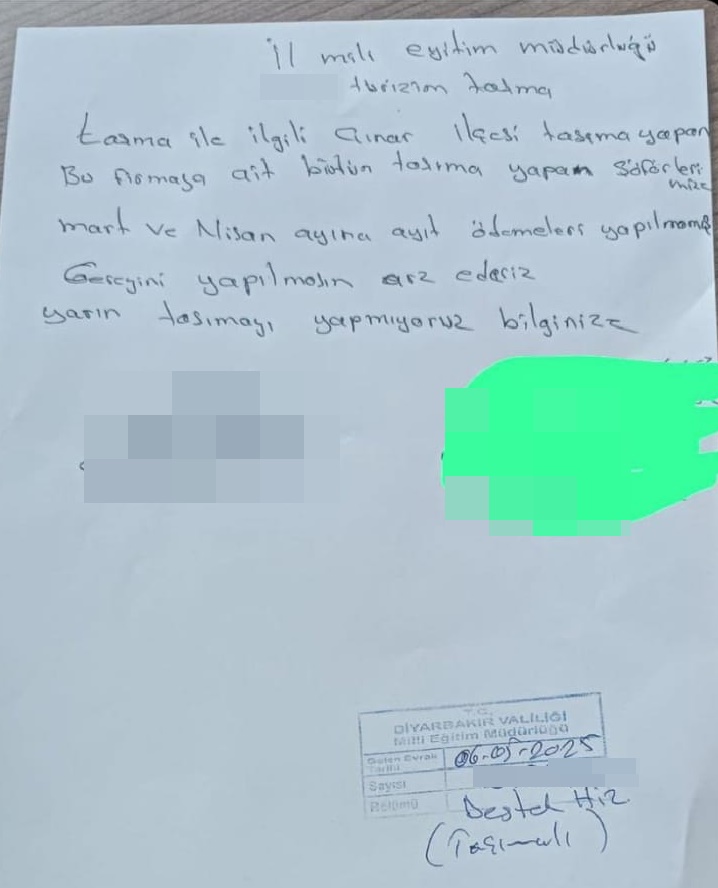 İl mili eyitim müdürlüğü
turizim tasıma
tasıma ile ilgili Çınar ilçesi tasıma yapan
Bu firmaya ait bütün tasıma yapan şöförleri
mize
mart ve Nisan ayına ayıt ödemeleri yapılmamış
Gereyini yapılmasın arz ederiz
yarın tasımayı yapmıyoruz bilginize
T.C.
DİYARBAKIR VALİLİĞİ
Milli Eğitim Müdürlüğü
Gelen Evrak
Tarihi 06-05-2025
Sayısı
Bölümü Destek Hiz.
(Taşımalı)